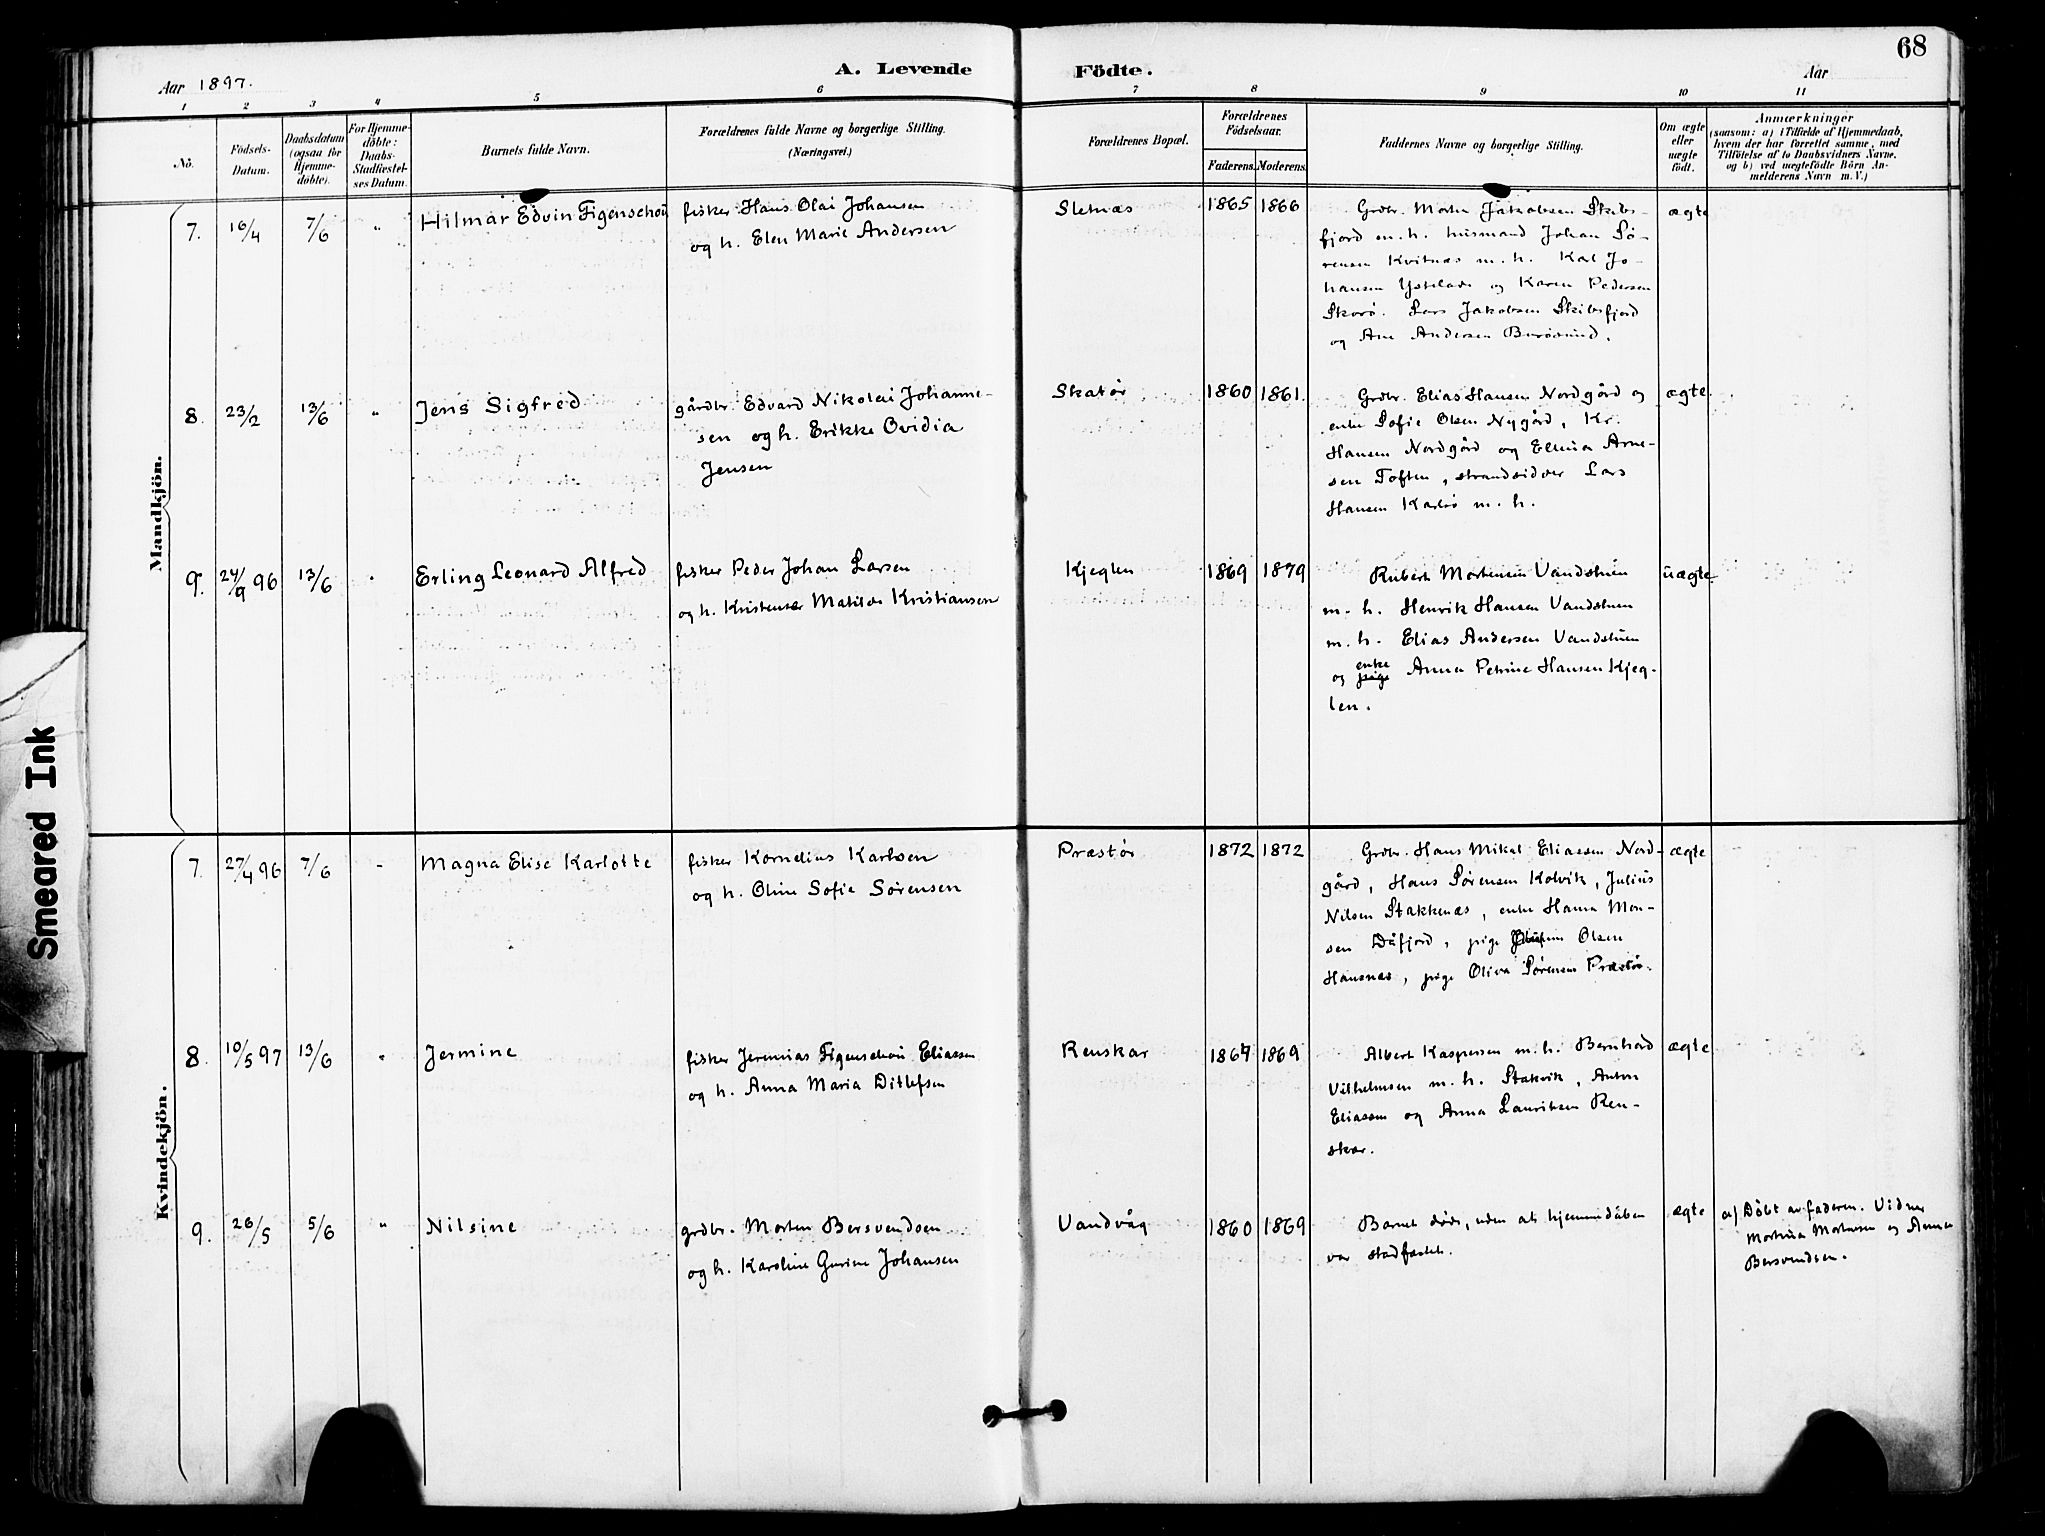 68
A. Levende Födte.
Aar 1897.
Aar
1 2 3 4 5 6 7 8 9 10 11
No.
Födsels-
Datum.
Daabsdatum
(ogsaa for
Hjemme-
döbte).
For Hjemme-
döbte:
Daabs-
Stadfæstel-
ses Datum.
Barnets fulde Navn.
Forældrenes fulde Navne og borgerlige Stilling.
(Næringsvei.)
Forældrenes Bopæl.
Forældrenes
Födselsaar.
Faderens. Moderens.
Faddernes Navne og borgerlige Stilling.
Om ægte
eller
uægte
födt.
Anmærkninger
(saasom: a) i Tilfælde af Hjemmedaab,
hvem der har forrettet samme, med
Tilföielse af to Daabsvidners Navne,
og b) ved uægtefödte Börn An-
melderens Navn m. V.)
Mandkjön.
7. 16/4 7/6 " Hilmar Edvin Figenschou
fisker Hans Olai Johansen
og h. Elen Marie Andersen
Sletnæs 1865 1866
Grdbr. Morten Jakobsen Skibs-
fjord m. h. husmand Johan Sø-
rensen Kvitnæs m. h. Karl Jo-
hansen og Karen Pedersen
Skorø. Lars Jakobsen Skibsfjord
og Ane Andersen Burøsund.
ægte
8. 23/2 13/6 " Jens Sigfred
gårdbr. Edvard Nikolai Johanne-
sen og h. Erikke Ovidia
Jensen
Skatør 1860 1861.
Grdbr. Elias Hansen Nordgård og
enke Sofie Olsen Nygård, Kr.
Hansen Nordgård og Ellina Arne-
sen Toften, strandsidder Lars
Hansen Karlsø m. h.
ægte.
9. 24/9 96 13/6 " Erling Leonard Alfred
fisker Peder Johan Larsen
og h. Kristense Matilde Kristiansen
Kjeglen 1869 1879
Rubert Mortensen Vandstuen
m. h. Henrik Hansen Vandstuen
m. h. Elias Andersen Vandstuen
enke
og pige Anna Petrine Hansen Kjeg-
len.
uægte.
Kvindekjön.
7. 27/4 96 7/6 - Magna Elise Karlotte
fisker Kornelius Karlsen
og h. Oline Sofie Sørensen
Præstør 1872 1872
Grdbr. Hans Mikal Eliassen Nord-
gård, Hans Sørensen Kolvik, Julius
Nilsen Stakkenæs, enke Hanna Mon-
sen Dåfjord, pige Olsen
Hansnæs, pige Oliva Sørensen Præstør.
ægte
8. 10/5 97 13/6 " Jermine
fisker Jeremias Figenschou Eliassen
og h. Anna Maria Ditlefsen
Renskar 1867 1869
Albert Kaspersen m. h. Bernhard
Vilhelmsen m. h. Stakvik, Anton
Eliassen og Anna Lauritsen Ren-
skar.
ægte
9. 26/5 5/6 " Nilsine
grdbr. Morten Bersvendsen
og h. Karoline Gurine Johansen
Vandvåg 1860 1869
Barnet døde, uden at hjemmedåben
var stadfæstet.
ægte
a) Døbt av faderen. Vidner
Mortensen og Anna
Bersvendsen.
Smeared Ink